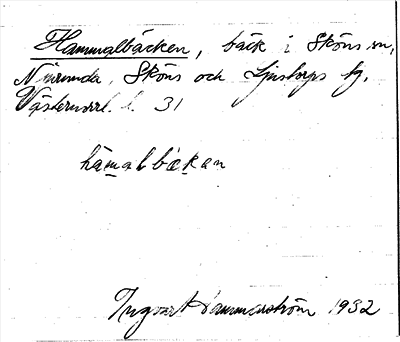 Hammalbäcken, bäck i Sköns sn,
Njurunda, Sköns och Ljustorps tg,
Västernorrl. l. 31
hämalbäkan
Ingvar Hammarström 1932